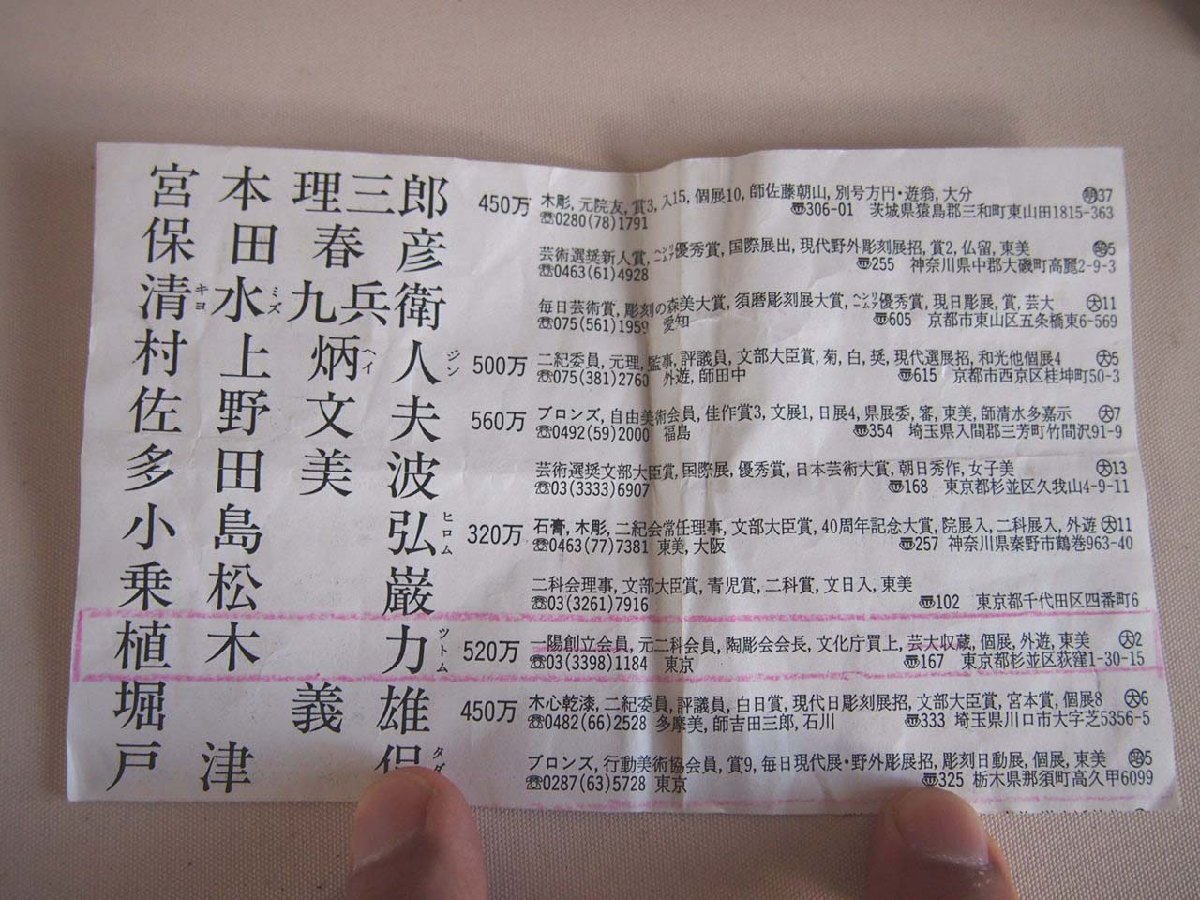 宮本理三郎 450万 木彫, 元院友, 賞3, 入15, 個展10, 師佐藤朝山, 別号方円・遊翁, 大分 明37
☎0280(78)1791 〠306-01 茨城県猿島郡三和町東山田1815-363
保田春彦 芸術選奨新人賞, 優秀賞, 国際展出, 現代野外彫刻展招, 賞2, 仏留, 東美 昭5
☎0463(61)4928 〠255 神奈川県中郡大磯町高麗2-9-3
清キヨ水ミズ九兵衛 毎日芸術賞, 彫刻の森美大賞, 須磨彫刻展大賞, 優秀賞, 現日彫展, 賞, 芸大 大11
☎075(561)1959 愛知 〠605 京都市東山区五条橋東6-569
村上炳ヘイ人ジン 500万 二紀委員, 元理, 監事, 評議員, 文部大臣賞, 菊, 白, 奨, 現代選展招, 和光他個展4 大5
☎075(381)2760 外遊, 師田中 〠615 京都市西京区桂坤町50-3
佐野文夫 560万 ブロンズ, 自由美術会員, 佳作賞3, 文展1, 日展4, 県展委, 審, 東美, 師清水多嘉示 大7
☎0492(59)2000 福島 〠354 埼玉県入間郡三芳町竹間沢91-9
多田美波 芸術選奨文部大臣賞, 国際展, 優秀賞, 日本芸術大賞, 朝日秀作, 女子美 大13
☎03(3333)6907 〠168 東京都杉並区久我山4-9-11
小島弘ヒロム 320万 石膏, 木彫, 二紀会常任理事, 文部大臣賞, 40周年記念大賞, 院展入, 二科展入, 外遊 大11
☎0463(77)7381 東美, 大阪 〠257 神奈川県秦野市鶴巻963-40
乗松巌 二科会理事, 文部大臣賞, 青児賞, 二科賞, 文日入, 東美
☎03(3261)7916 〠102 東京都千代田区四番町6
植木力ツトム 520万 一陽創立会員, 元二科会員, 陶彫会会長, 文化庁買上, 芸大収蔵, 個展, 外遊, 東美 大2
☎03(3398)1184 東京 〠167 東京都杉並区荻窪1-30-15
堀義雄 450万 木心乾漆, 二紀委員, 評議員, 白日賞, 現代日彫刻展招, 文部大臣賞, 宮本賞, 個展8 大6
☎0482(66)2528 多摩美, 師吉田三郎, 石川 〠333 埼玉県川口市大字芝5356-5
戸津侃タダ ブロンズ, 行動美術協会員, 賞9, 毎日現代展・野外彫展招, 彫刻日動展, 個展, 東美 昭5
☎0287(63)5728 東京 〠325 栃木県那須町高久甲6099